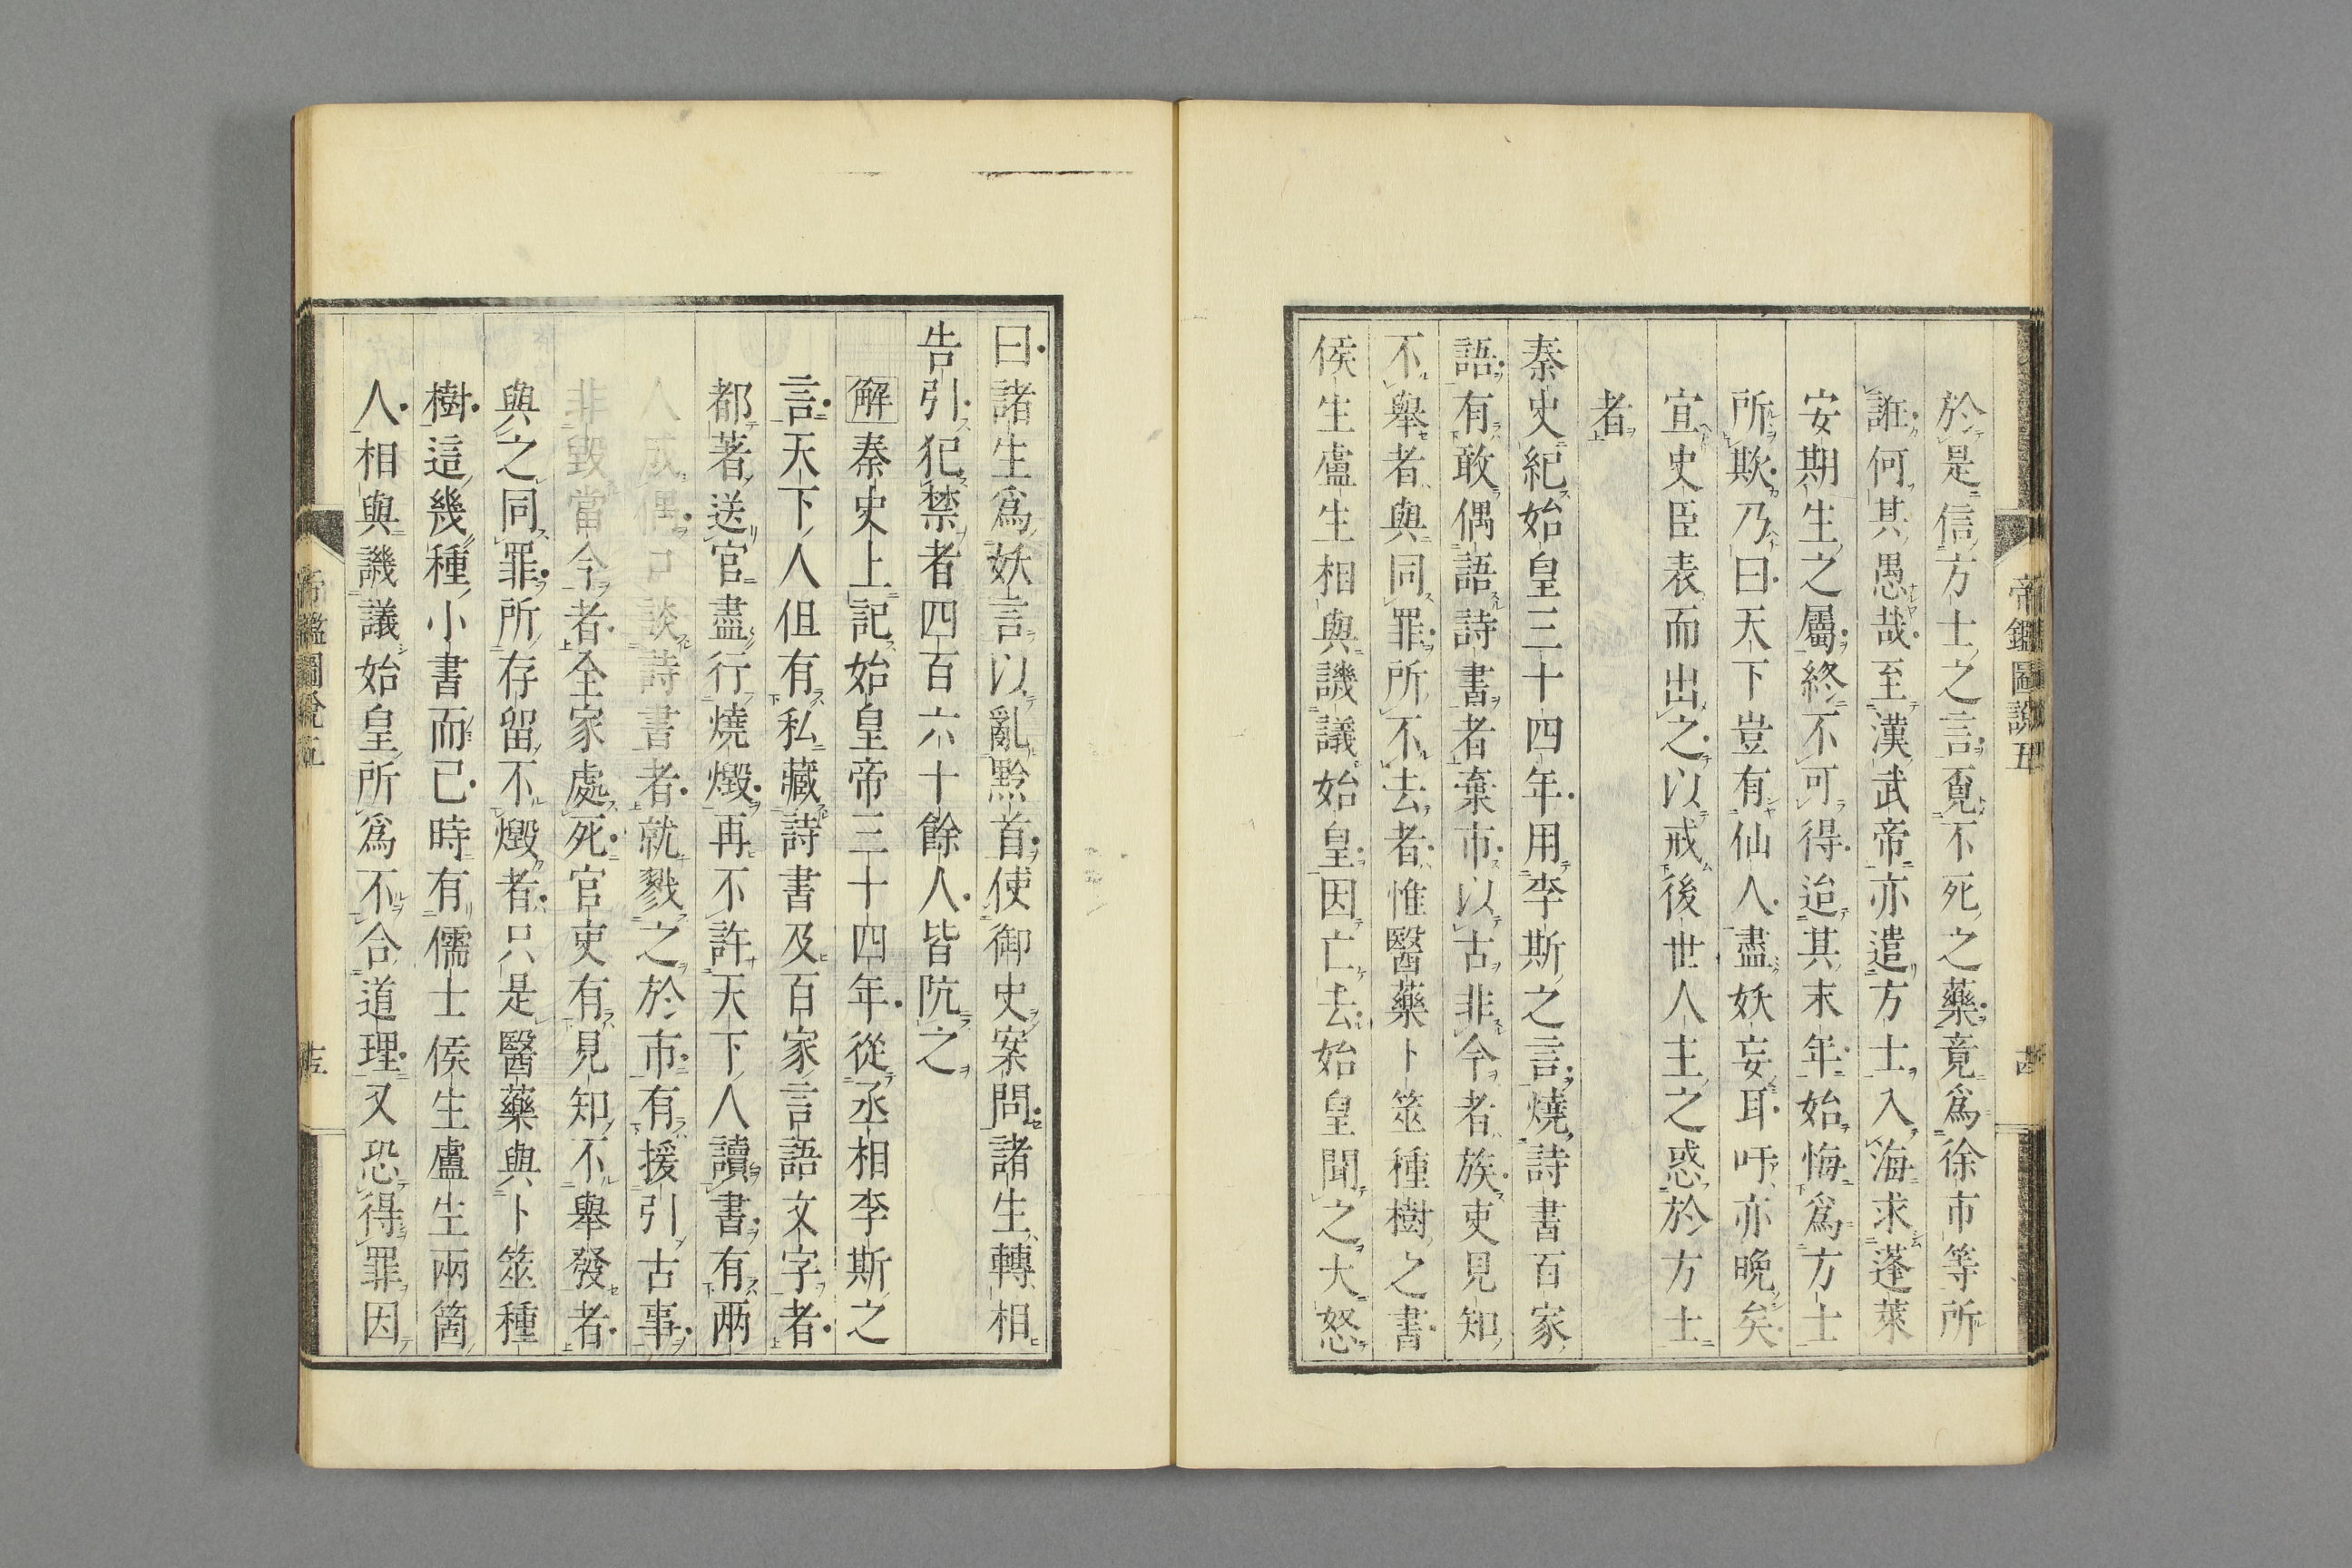 帝鑑圖說五
於是信方士之言覓不死之藥竟爲徐市等所
誑何其愚哉至漢武帝亦遣方士入海求蓬萊
安期生之屬終不可得迨其末年始悔爲方士
所欺乃曰天下豈有仙人盡妖妄耳吁亦晚矣
宜史臣表而出之以戒後世人主之惑於方士
者
秦史紀始皇三十四年用李斯之言燒詩書百家
語有敢偶語詩書者棄市以古非今者族吏見知
不舉者與同罪所不去者惟醫藥卜筮種樹之書
侯生盧生相與譏議始皇因亡去始皇聞之大怒
曰諸生爲妖言以亂黔首使御史案問諸生轉相
告引犯禁者四百六十餘人皆阬之
解秦史上記始皇帝三十四年從丞相李斯之
言天下人但有私藏詩書及百家言語文字者
都著送官盡行燒燬再不許天下人讀書有兩
人成偶口談詩書者就戮之於市有援引古事
非毀當今者全家處死官吏有見知不舉發者
與之同罪所存留不燬者只是醫藥與卜筮種
樹這幾種小書而已時有儒士侯生盧生兩箇
人相與譏議始皇所爲不合道理又恐得罪因
帝鑑圖說五